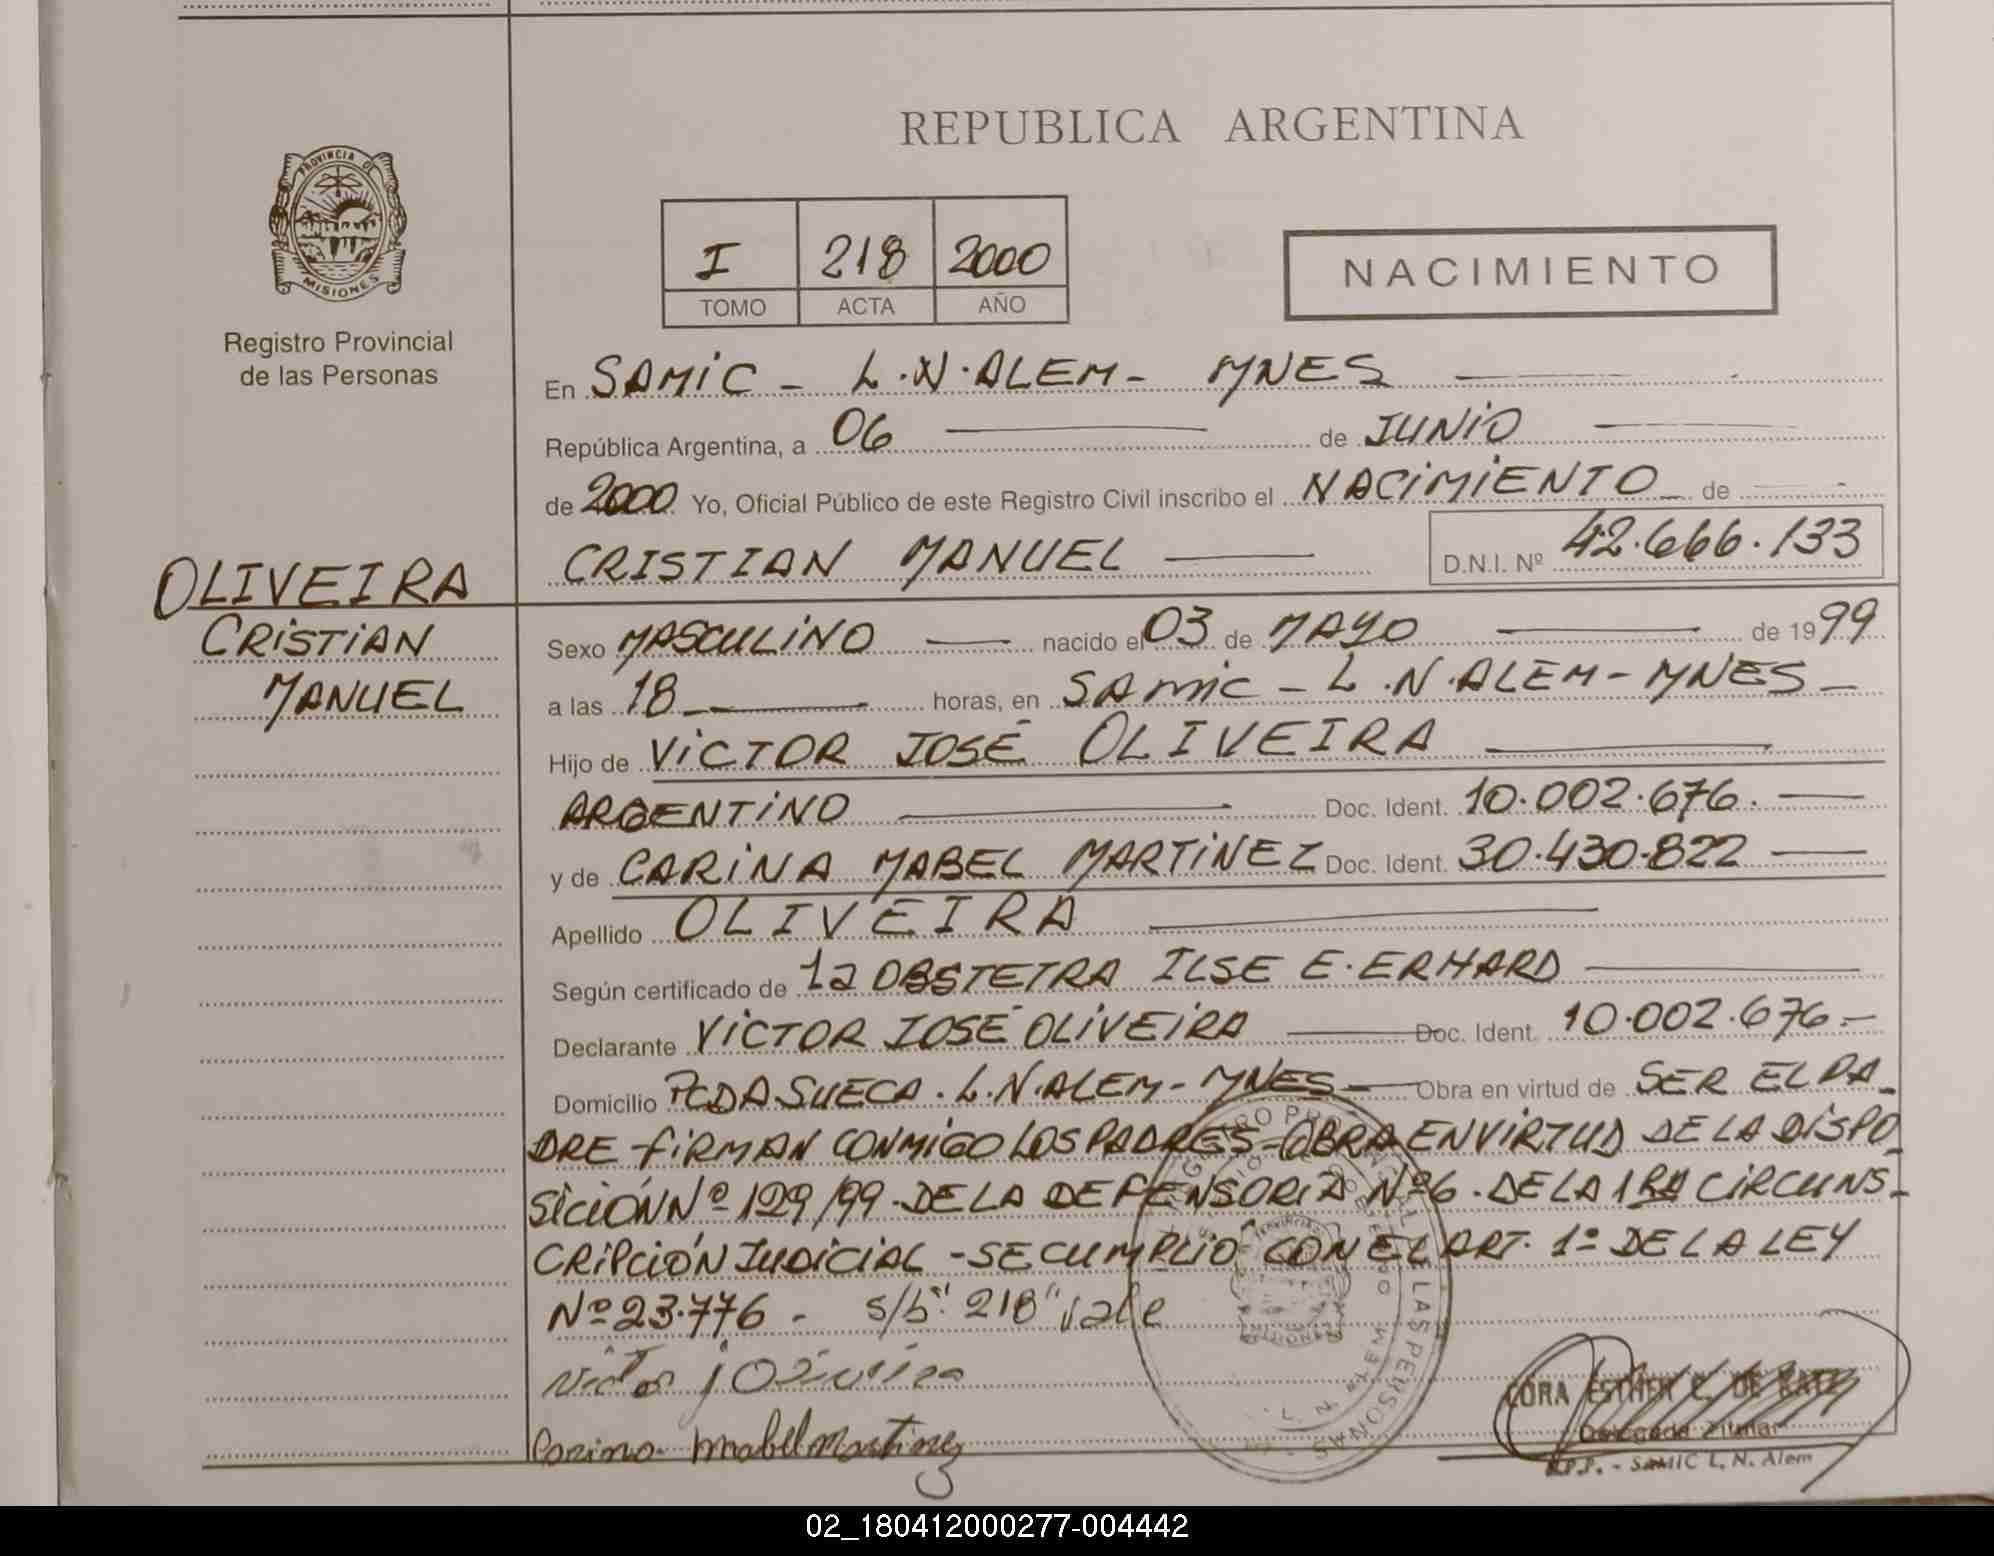 REPUBLICA ARGENTINA
PROVINCIA DE
MISIONES
Registro Provincial
de las Personas
I 218 2000
TOMO ACTA AÑO
NACIMIENTO
En SAMIC - L.N.ALEM - MNES
República Argentina, a 06 de JUNIO
de 2000 Yo, Oficial Público de este Registro Civil inscribo el NACIMIENTO de
CRISTIAN MANUEL D.N.I. Nº 42.666.133
OLIVEIRA
CRISTIAN
MANUEL
Sexo MASCULINO nacido el 03 de MAYO de 1999
a las 18 horas, en SAMIC - L.N.ALEM - MNES -
Hijo de VICTOR JOSÉ OLIVEIRA
ARGENTINO Doc. Ident. 10.002.676.
y de CARINA MABEL MARTINEZ Doc. Ident. 30.430.822
Apellido OLIVEIRA
Según certificado de la OBSTETRA ILSE E. ERHARD
Declarante VICTOR JOSÉ OLIVEIRA Doc. Ident. 10.002.676.-
Domicilio PCDA SUECA. L.N.ALEM - MNES - Obra en virtud de SER EL PA-
DRE - FIRMAN CONMIGO LOS PADRES - OBRA EN VIRTUD DE LA DISPO-
SICIÓN Nº 129/99. DE LA DEFENSORIA Nº 6. DE LA 1RA CIRCUNS-
CRIPCIÓN JUDICIAL - SE CUMPLIO CON EL ART. 1º DE LA LEY
Nº 23.776 - s/b: "218" vale
Victor J Oliveira
Carina Mabel Martinez
CORA ESTHER C. DE RATZ
Delegada Titular
R.P.P. - SAMIC L. N. Alem
02_180412000277-004442